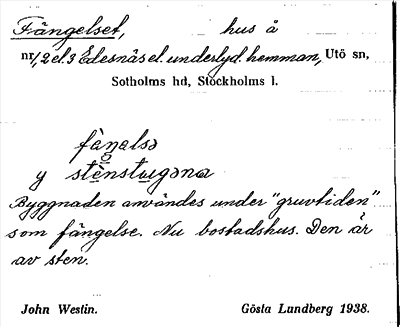 Fängelset, hus å
nr 1, 2 el. 3 Edesnäs el. underlyd. hemman, Utö sn,
Sotholms hd, Stockholms l.
fäŋəlsə
y stenstugəna
Byggnaden användes under "gruvtiden"
som fängelse. Nu bostadshus. Den är
av sten.
John Westin. Gösta Lundberg 1938.